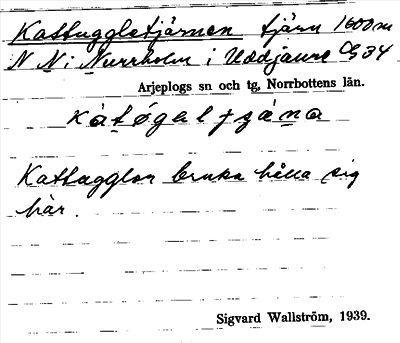 Kattuggletjärnen tjärn 1600 m
N N i Nurrholm i Uddjaure Cg 34
Arjeplogs sn och tg, Norrbottens län.
Kattugglan bruka hålla sig
här.
Sigvard Wallström, 1939.